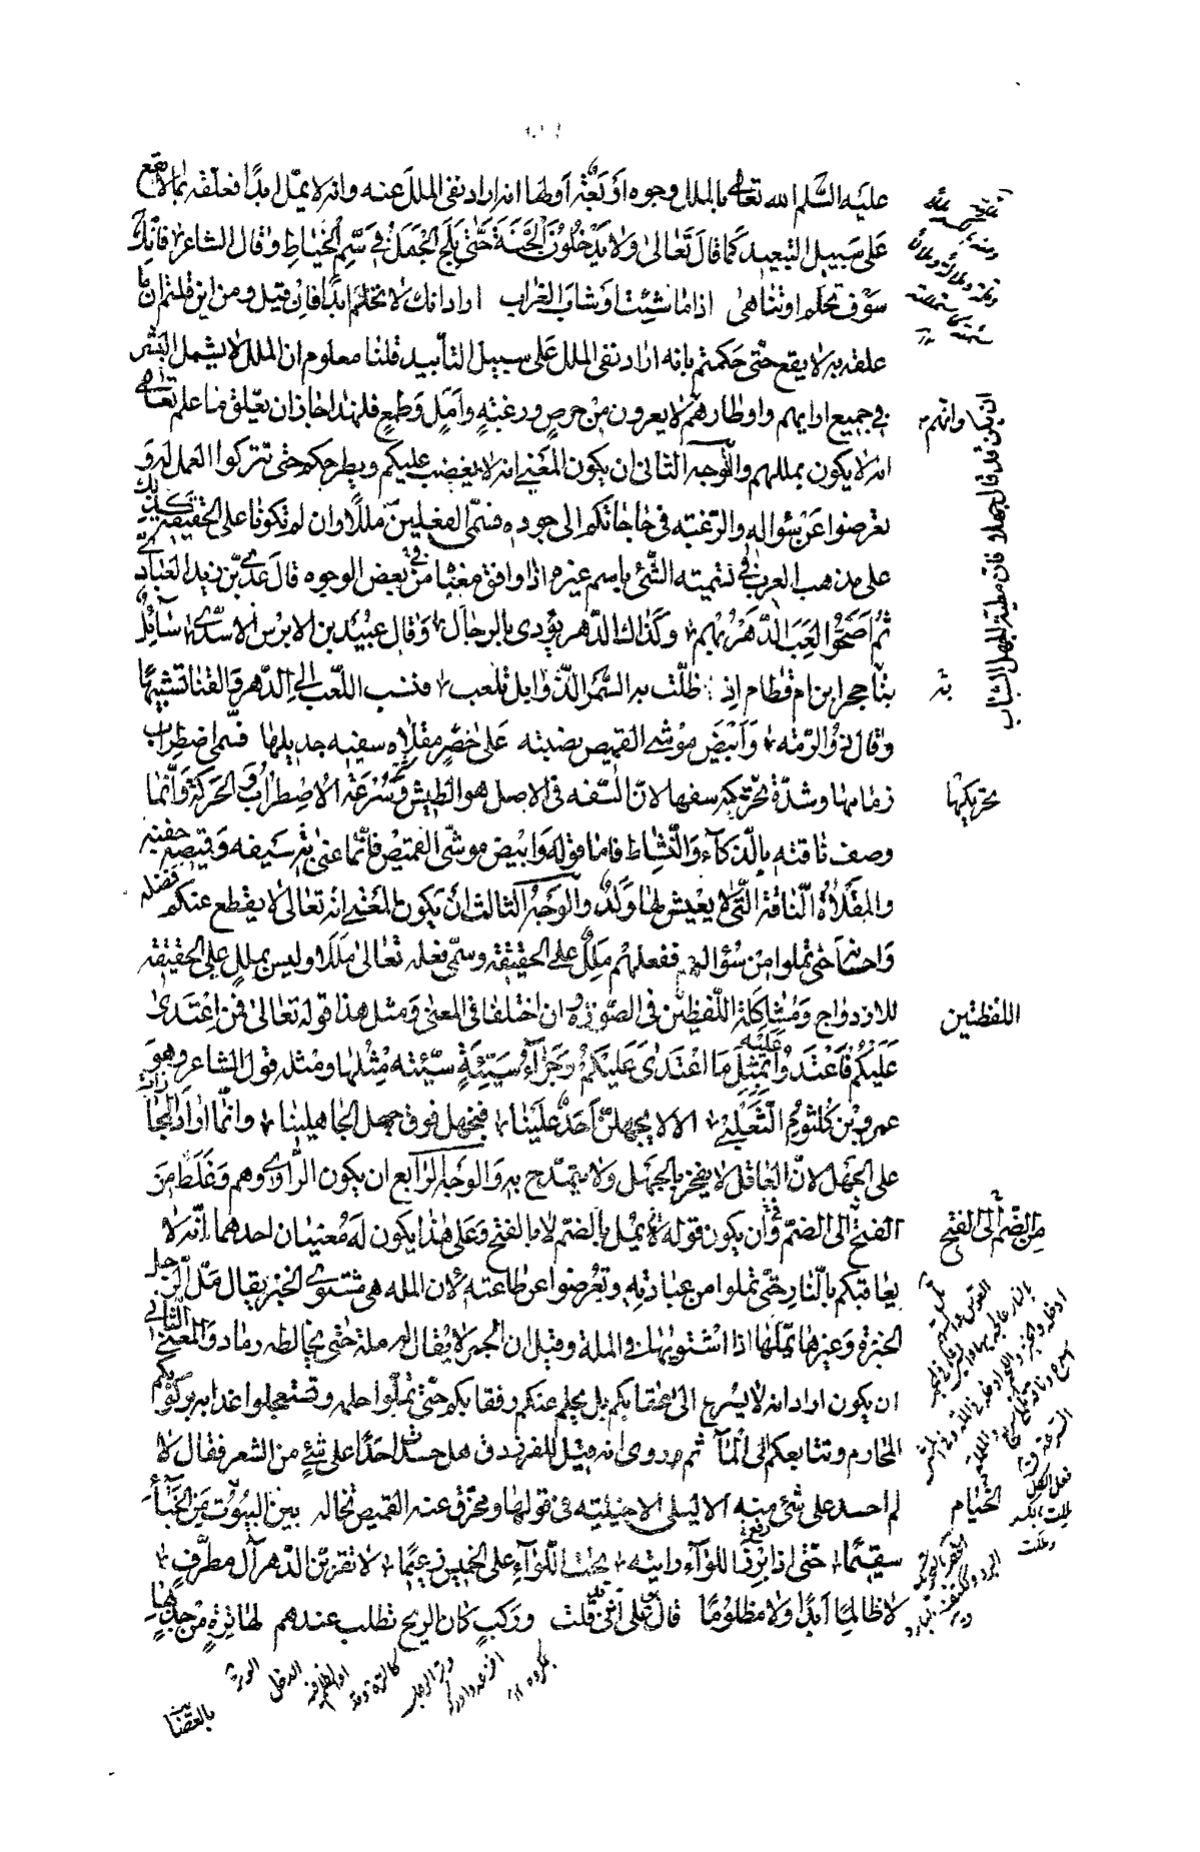 عليه السّلم الله تعالى بالملل وجوه اربعة اولها انه اراد نفى الملل عنه وانه لا يملّ ابدًا فعلّقه بما لا يقع
على سبيل التبعيد كما قال تعالى ولا يدخلون الجنة حتى يلج الجمل في سمّ الخياط وقال الشاعر فانك
سوف تحلم او تناهى اذا ما شئت او شاب الغراب اراد انك لا تحلم ابدًا فان قيل ومن اين قلتم ان ما
علقه به لا يقع حتى حكمتم بانه اراد نفى الملل على سبيل التأبيد قلنا معلوم ان الملل لا يشمل البشر
في جميع ارايهم واوطارهم لا يعرون من حرص ورغبة وامل وطمع فلهذا جاز ان يعلّق ما علم تعالى
انه لا يكون بمللهم والوجه الثانى ان يكون المعنى انه لا يغضب عليكم ويطرحكم حتى تتركوا العمل له و
تعرضوا عن سؤاله والرغبة في حاجاتكم الى جوده فسمّى الفعلين مللًا وان لم تكونا على الحقيقة كذلك
على مذهب العرب في تسمية الشّئ باسم غيره اذا وافق معناه من بعض الوجوه قال عدى بن زيد العبادى
ثم اضحوا لعب الدهر بهم وكذاك الدّهر يؤدى بالرجال وقال عبيد بن الابرص الاسدى سائل
بنا حجر ابن ام قطام اذ ظلّت به السّمر الذوابل تلعب فنسب اللعب الى الدهر والقنا تشبيهًا
وقال ذو الرمة وابيض موشى القميص نصبته على خصر مقلاة سفيه جديلها فسمى اضطراب
زمامها وشدّة تحركه سفها لانّ السّفه في الاصل هو الطيش وسرعة الاضطراب والحركة وانّما
وصف ناقته بالذكاء والنشاط فاما قوله وابيض موشّى القميص فانّما عنى به سيفه وقميصه جفنه
والمقلاة الناقة التى لا يعيش لها ولد والوجه الثالث ان يكون المعنى انه تعالى لا يقطع عنكم فضله
واحسانه حتى تملوا من سؤاله ففعلهم ملل على الحقيقة وسمّى فعله تعالى مللًا وليس بملل على الحقيقة
للازدواج ومشاكلة اللفظين في الصورة وان اختلفا في المعنى ومثل هذا قوله تعالى فمن اعتدى
عليكم فاعتدوا عليه بمثل ما اعتدى عليكم وجزاء سيّئة سيّئة مثلها ومثله قول الشاعر وهو
عمرو بن كلثوم التغلبى الا لا يجهلن احد علينا فنجهل فوق جهل الجاهلينا وانّما اراد المجازاة
على الجهل لانّ العاقل لا يفخر بالجهل ولا يتمدح به والوجه الرابع ان يكون الراوى وهم وغلط من
الفتح الى الضمّ وان يكون قوله لا يمل بالضم لا بالفتح وعلى هذا يكون له معنيان احدهما انّه لا
يعاقبكم بالنار حتى تملوا من عبادته وتعرضوا عن طاعته لان المله هى مشتوى الخبز يقال ملّ الرجل
الخبزة وغيرها يملّها اذا اشتويها في الملة وقيل ان الجمر لا يقال له ملة حتى يخالطه رماد والمعنى الثانى
ان يكون اراد انه لا يسرع الى عقابكم بل يحلم عنكم رفقا بكم حتى تملّوا حلمه وتستعجلوا عذابه بركوبكم
المحارم وتتابعكم في المآ ثم وروى انه قيل للفرزدق هل حسدت احدًا على شئ من الشعر فقال لا
لم احسد على شئ منه الا ليلى الاخيلية في قولها ومخرّق عنه القميص تخاله بين البيوت من الحيآء
سقيما حتى اذا برز اللوآء رايته تحت اللوآء على الخميس زعيما لا تقربن الدهر آل مطرّف
لا ظالما ابدًا ولا مظلومًا قال على انّى قلت وركب كان الريح تطلب عندهم لها ترة من جذبها
بالعصائب
وانهم
ان يكن قد قال جهلا فان مطية الجهل الشباب
به
تحريكها
اللفظتين
من الضمّ الى الفتح
الخيام